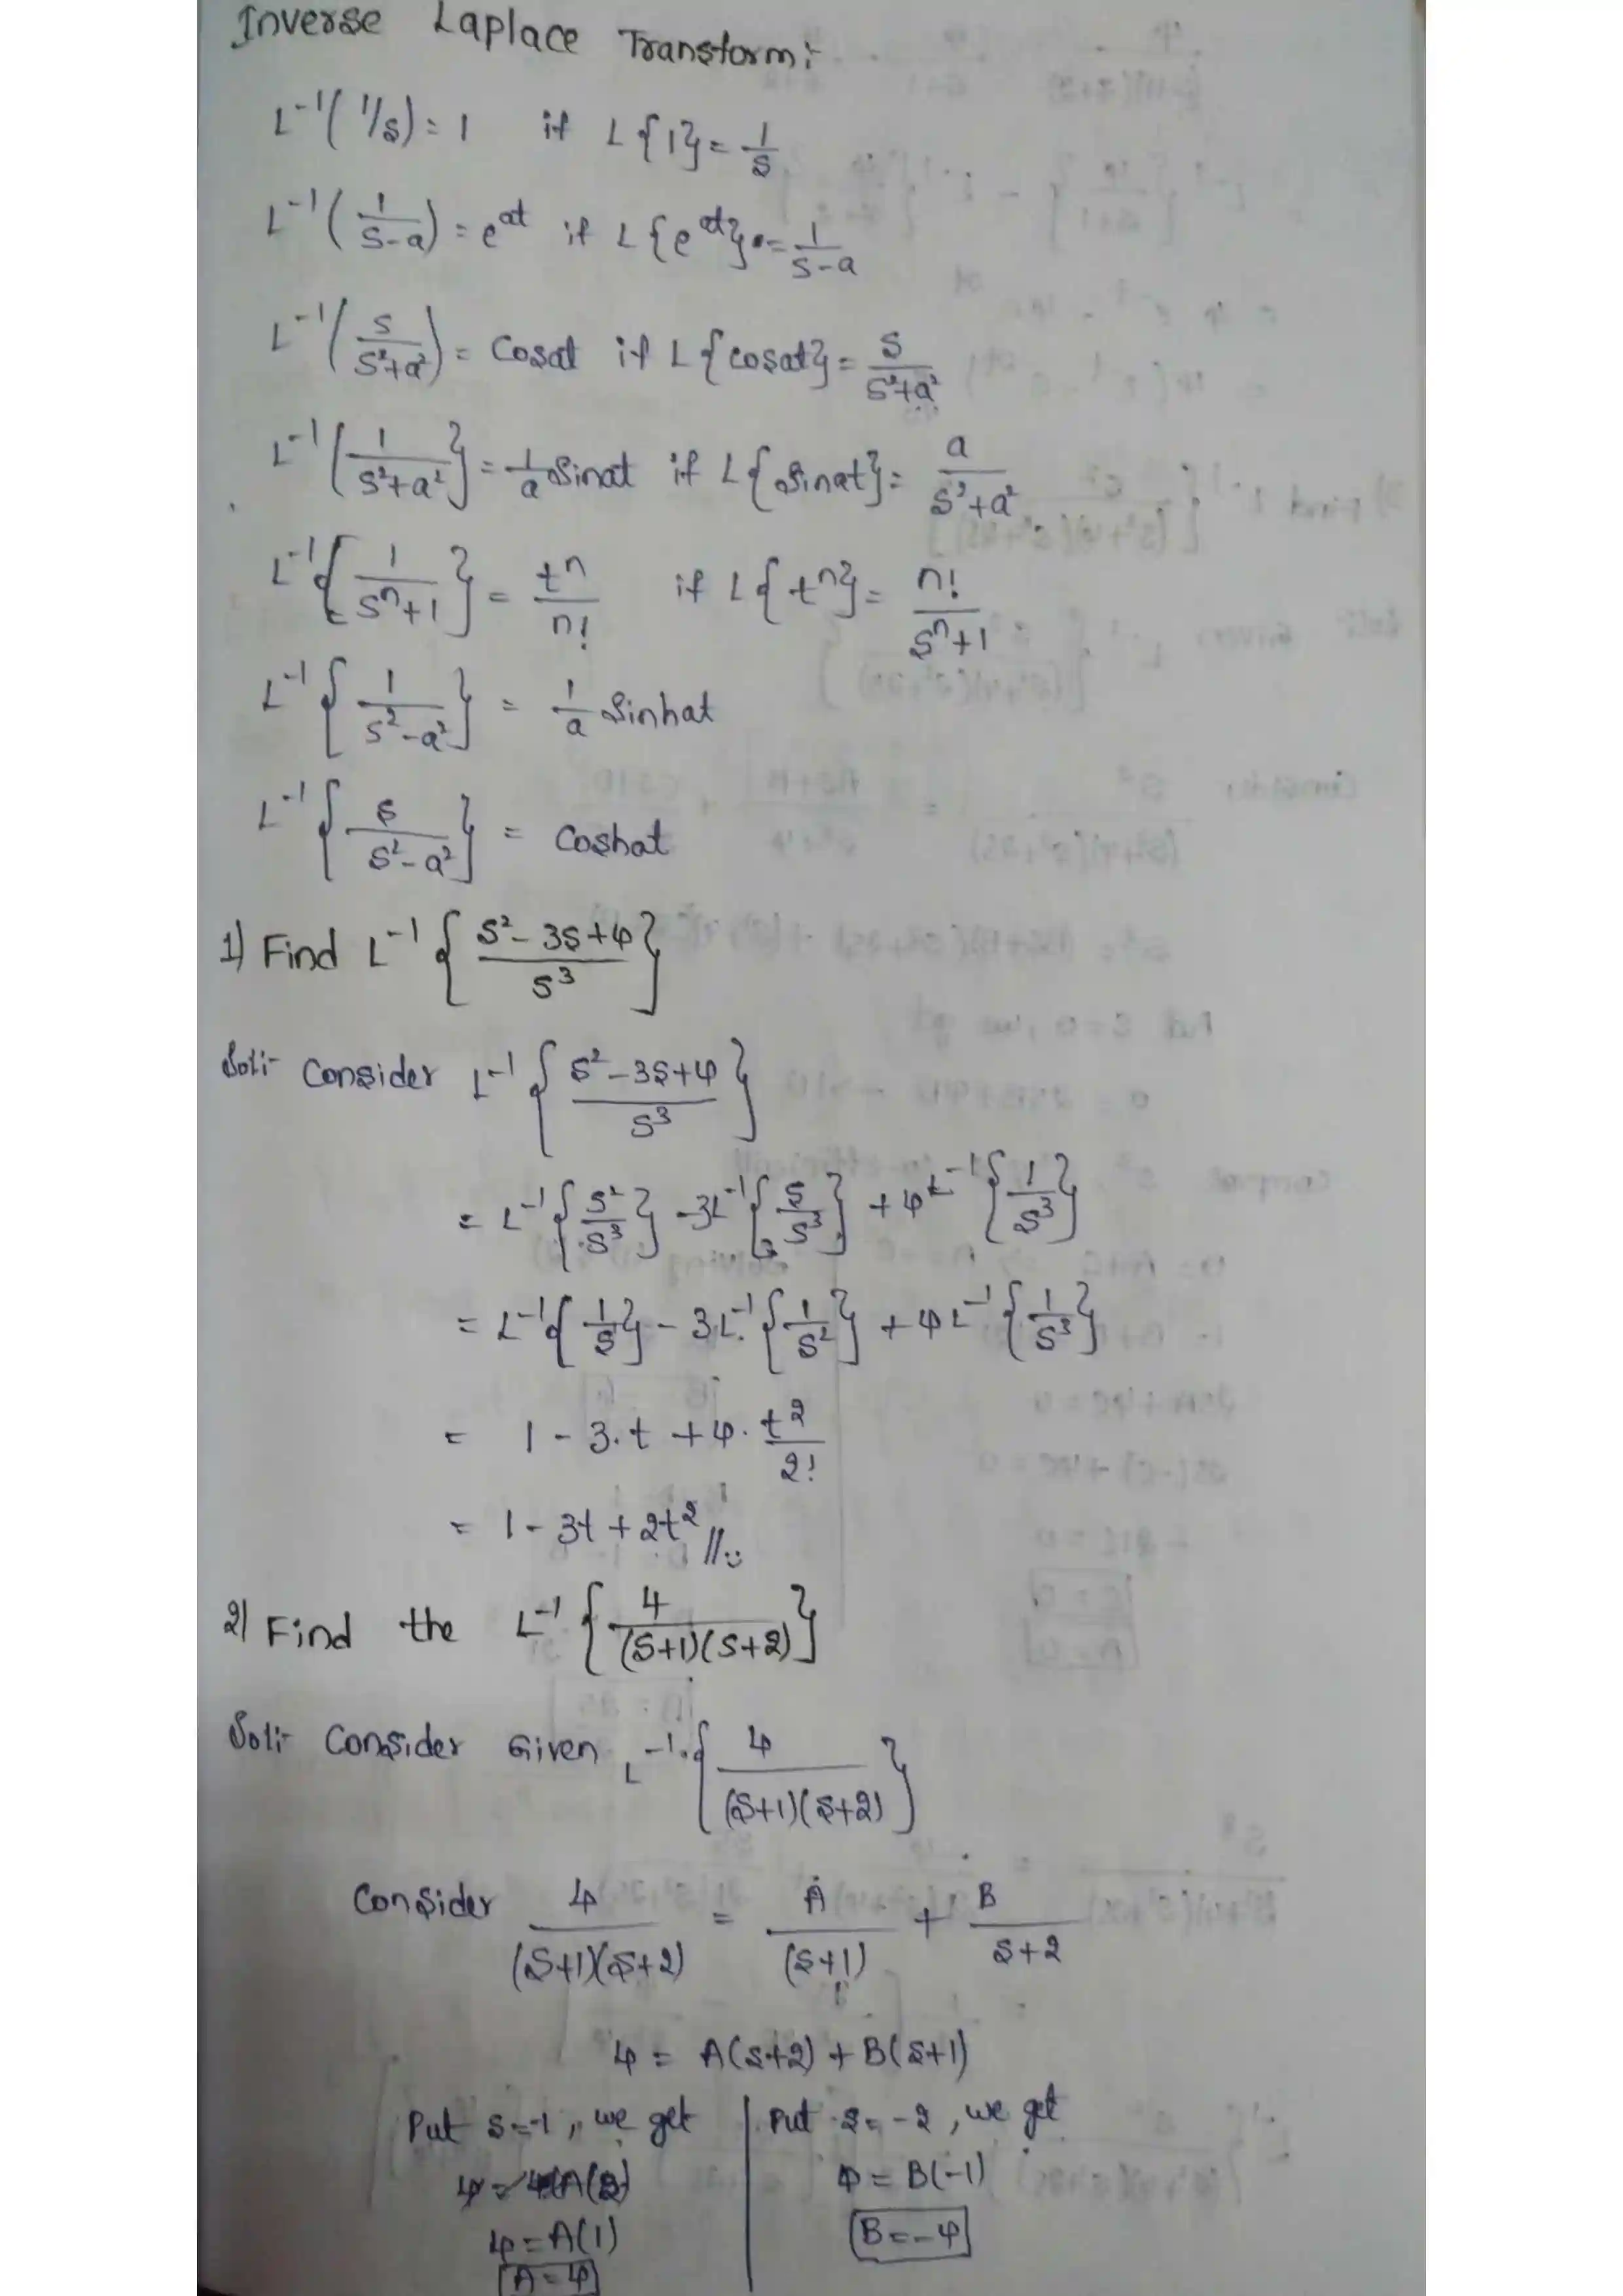 Inverse Laplace Transform:-
L⁻¹(1/s) = 1 if L{1} = 1/s
L⁻¹(1/(s-a)) = e^at if L{e^at} = 1/(s-a)
L⁻¹(s/(s²+a²)) = Cosat if L{cosat} = s/(s²+a²)
L⁻¹{1/(s²+a²)} = 1/a Sinat if L{Sinat} = a/(s²+a²)
L⁻¹{1/(sⁿ+1)} = tⁿ/n! if L{tⁿ} = n!/(sⁿ+1)
L⁻¹{1/(s²-a²)} = 1/a Sinhat
L⁻¹{s/(s²-a²)} = Coshat
1) Find L⁻¹{(s²-3s+4)/s³}
Sol:- Consider L⁻¹{(s²-3s+4)/s³}
= L⁻¹{s²/s³} - 3L⁻¹{s/s³} + 4L⁻¹{1/s³}
= L⁻¹{1/s} - 3L⁻¹{1/s²} + 4L⁻¹{1/s³}
= 1 - 3.t + 4. t²/2!
= 1 - 3t + 2t² //
2) Find the L⁻¹{4/((s+1)(s+2))}
Sol:- Consider Given L⁻¹{4/((s+1)(s+2))}
Consider 4/((s+1)(s+2)) = A/(s+1) + B/(s+2)
4 = A(s+2) + B(s+1)
Put s=-1, we get
4 = A(1)
A = 4
Put s=-2, we get
4 = B(-1)
B = -4